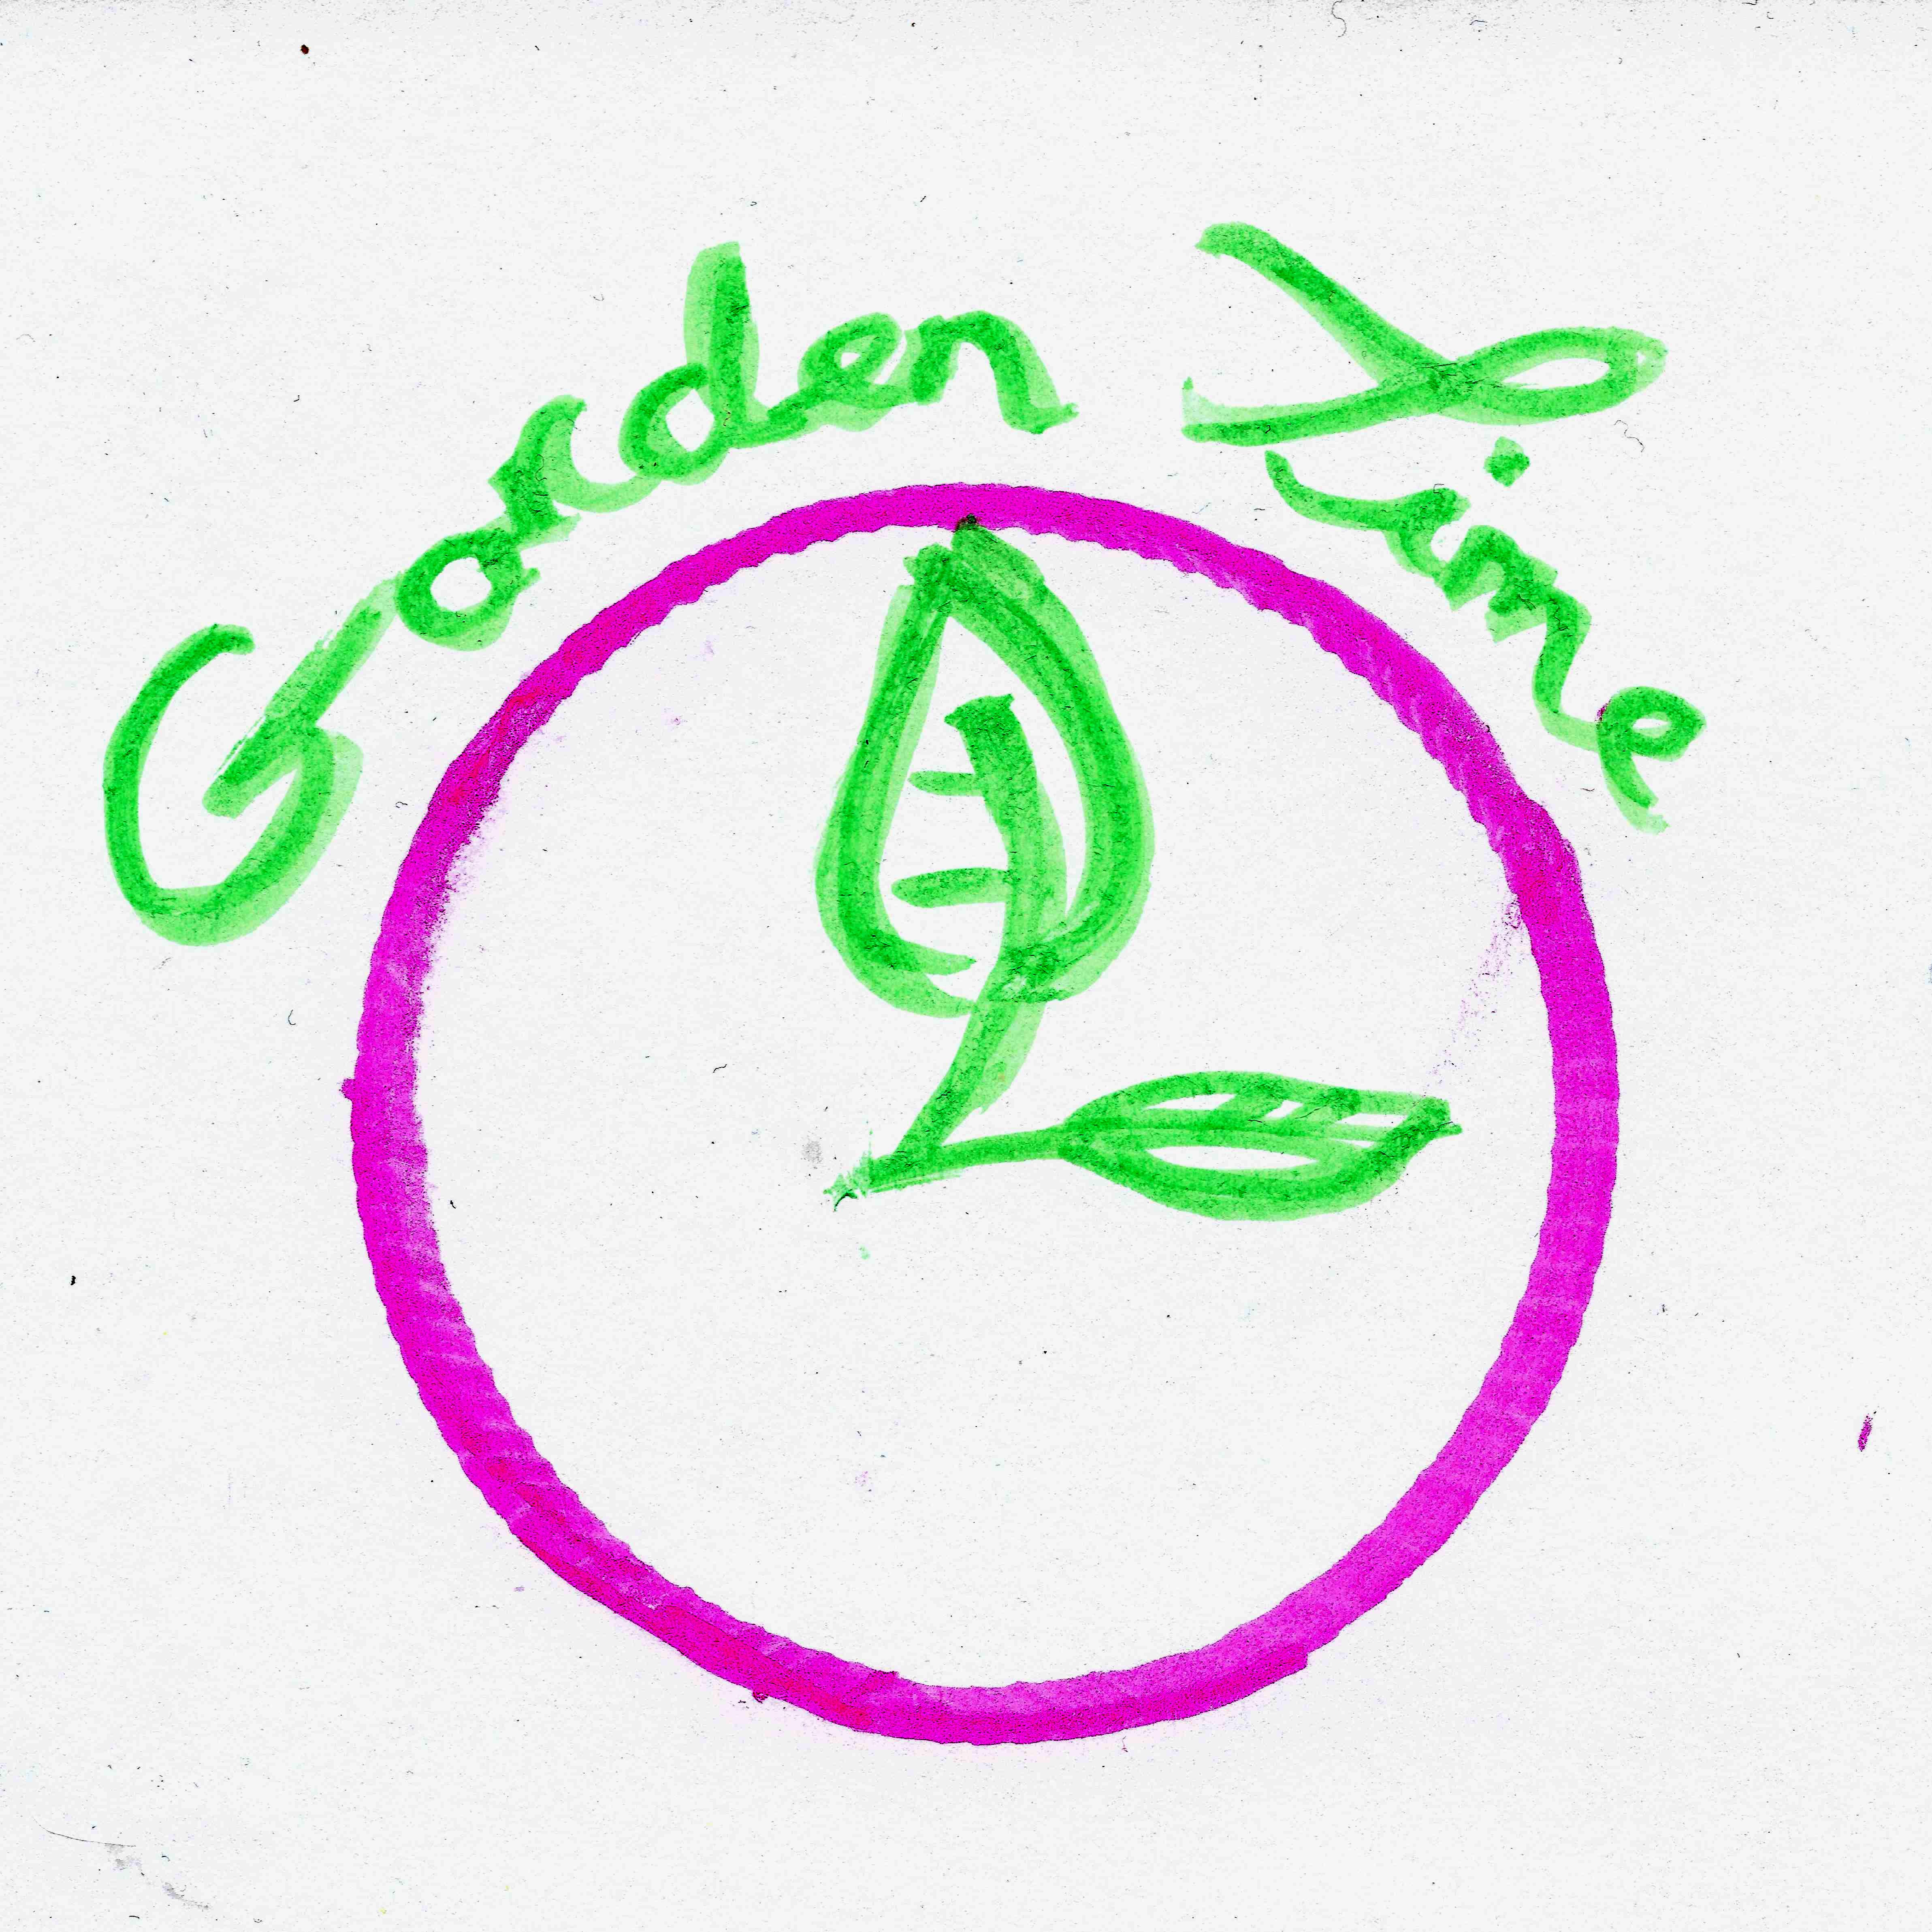 Garden Time